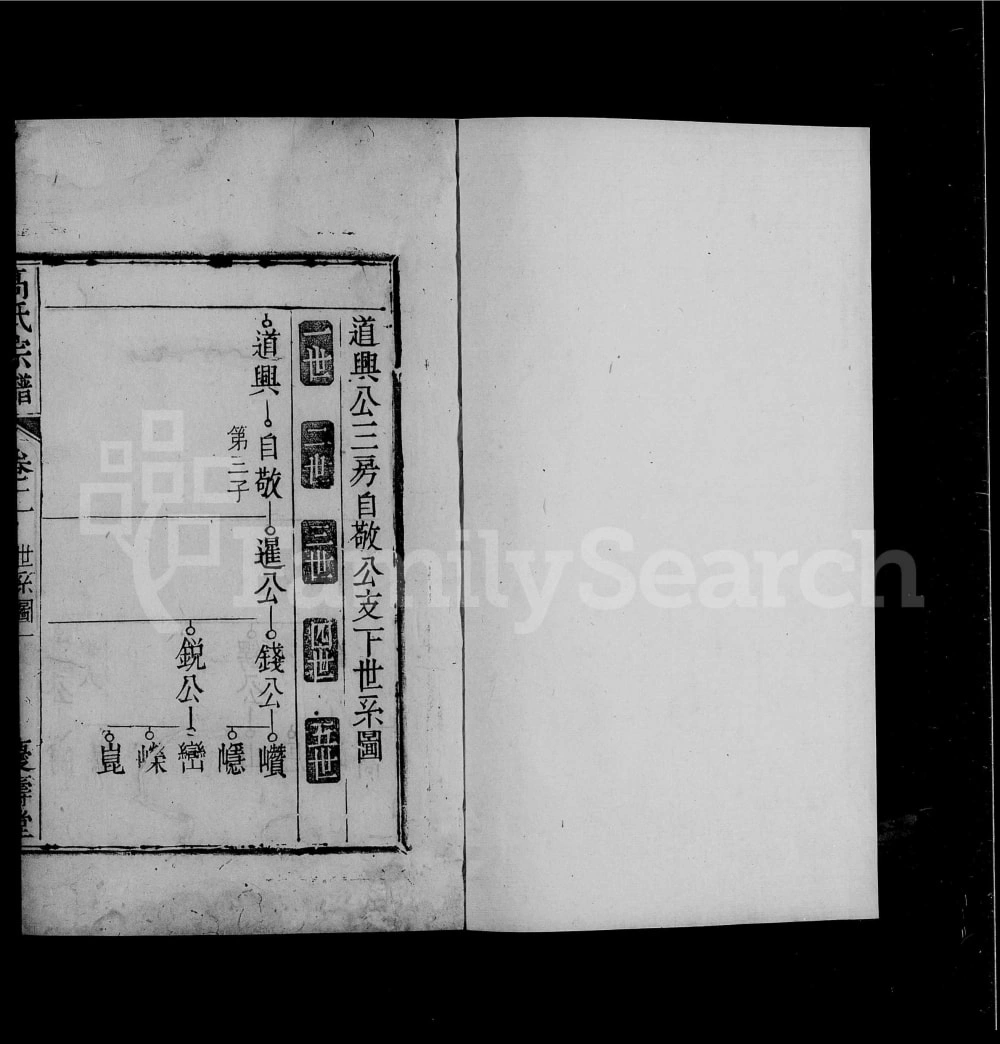 道興公三房自敬公支下世系圖
一世 二世 三世 四世 五世
道興 自敬 暹公 錢公 巑
第三子
㠥
銳公 巒
嶸
崑
高氏宗譜 卷二 世系圖 一 慶壽堂
FamilySearch